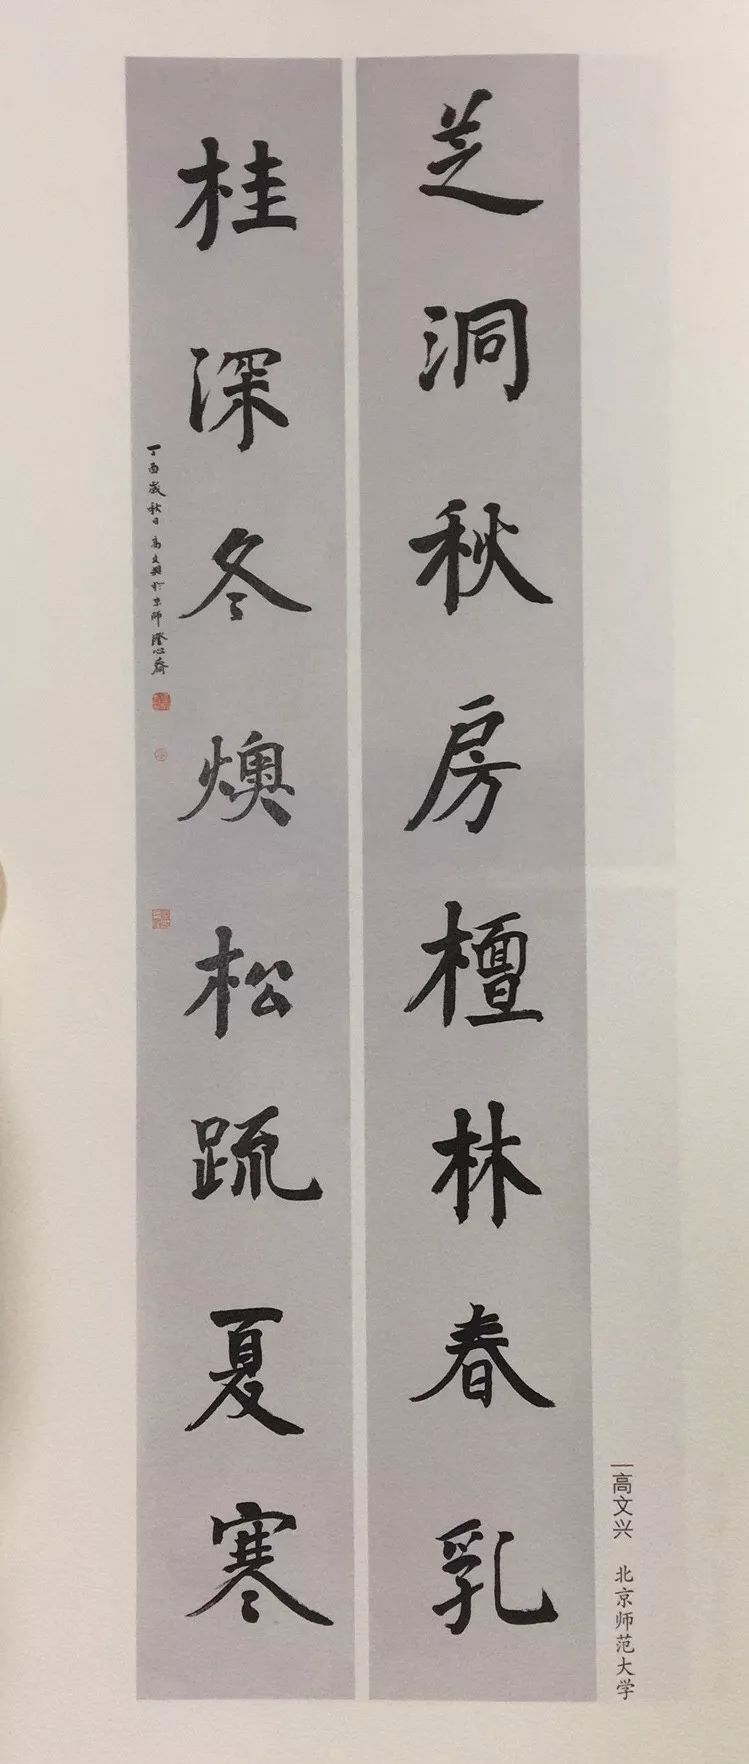 芝洞秋房檀林春乳
桂深冬燠松疏夏寒
丁酉岁秋日高文興於京师澄心齋
高文兴 北京师范大学